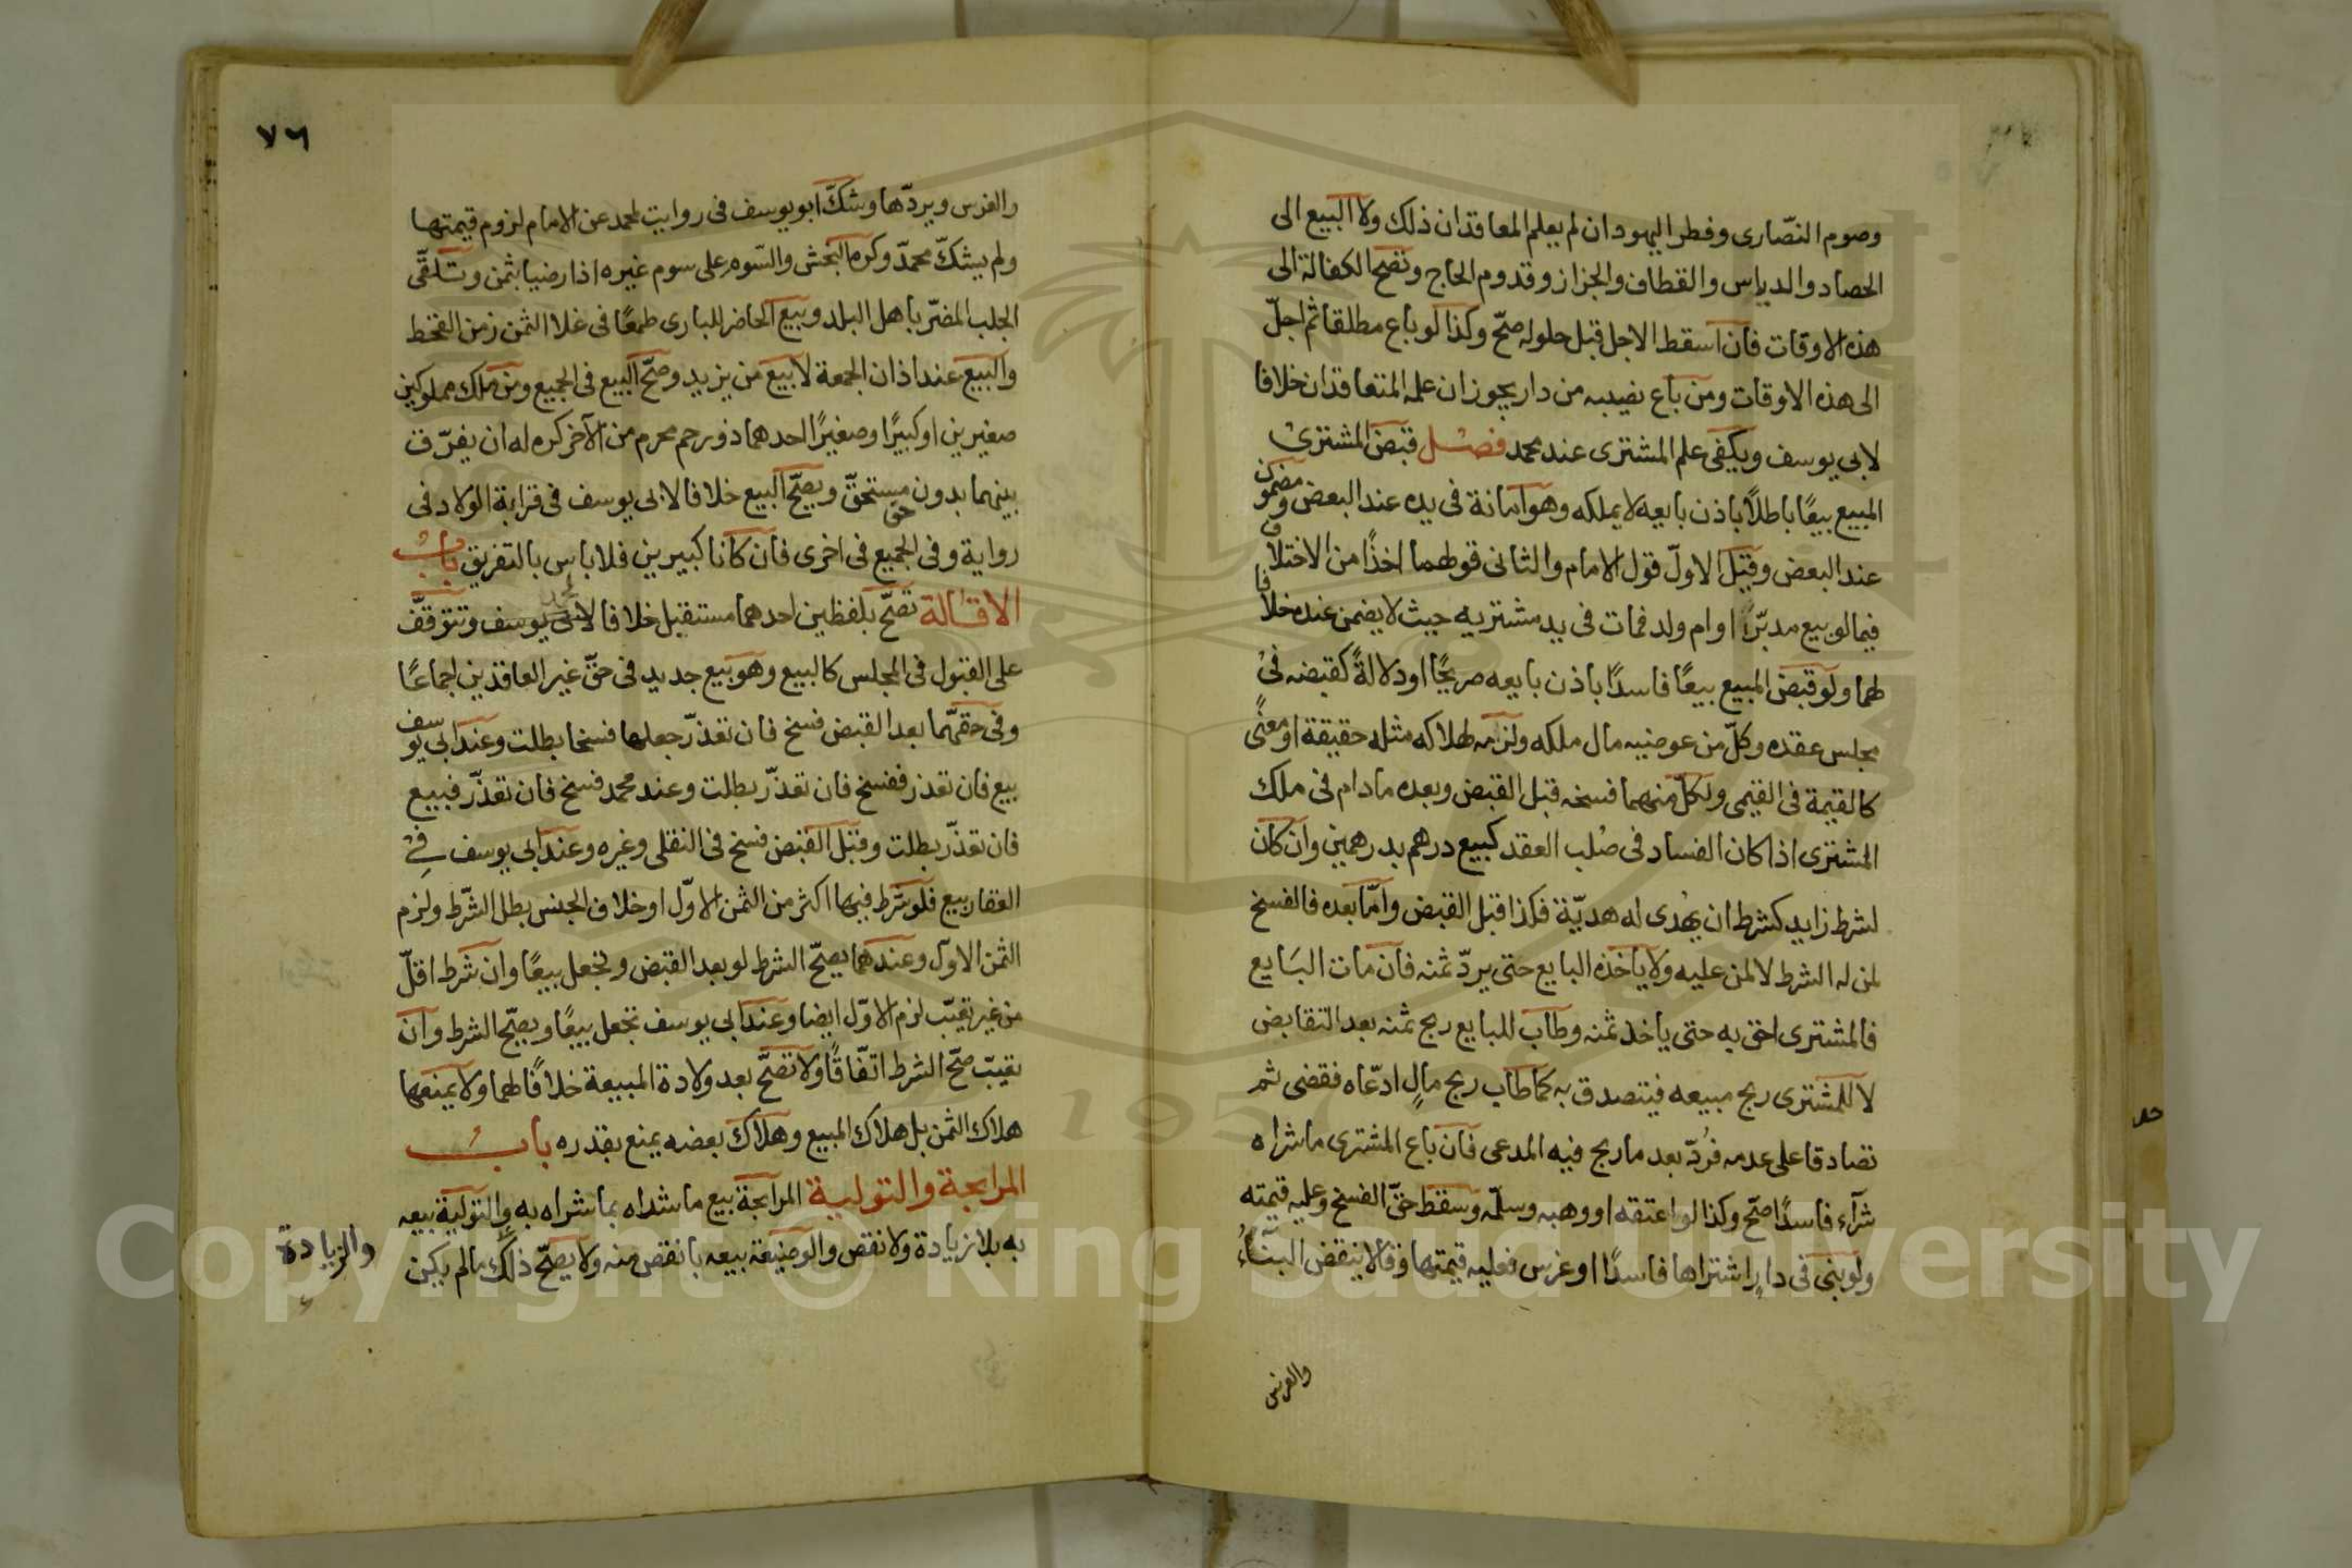 وصوم النصّارى وفطر اليهود ان لم يعلم المعاقدان ذلك ولا البيع الى
الحصاد والدياس والقطاف والجزاز وقدوم الحاج وتصح الكفالة الى
هذه الاوقات فان اسقط الاجل قبل حلوله صحّ وكذا لو باع مطلقا ثم اجلّ
الى هذه الاوقات ومن باع نصيبه من دار يجوز ان علمه المتعاقدان خلافا
لابي يوسف ويكفى علم المشترى عند محمد فصل قبض المشترى
المبيع بيعًا باطلًا باذن بايعه لا يملكه وهو امانة في يده عند البعض ومضمون
عند البعض وقيل الاولّ قول الامام والثاني قولهما اخذًا من الاختلاف
فيما لو بيع مدبّرًا او ام ولد فمات في يد مشتريه حيث لا يضمن عنده خلافا
لهما ولو قبض المبيع بيعًا فاسدًا باذن بايعه صريحًا او دلالةً كقبضه فى
مجلس عقده وكلّ من عوضيه مال ملكه ولزمه لهلاكه مثله حقيقة او معنًى
كالقيمة فى القيمى ولكلّ منهما فسخه قبل القبض وبعده مادام فى ملك
المشترى اذا كان الفساد فى صُلب العقد كبيع درهم بدرهمين وان كان
لشرط زايد كشرط ان يهُدى له هديّة فكذا قبل القبض وامّا بعده فالفسخ
لمن له الشرط لا لمن عليه ولا ياخذه البايع حتى يردّ ثمنه فان مات البَايع
فالمشترى احق به حتى ياخذ ثمنه وطاب للبايع ربح ثمنه بعد التقابض
لا للمشترى ربح مبيعه فيتصدق به كما طاب ربح مالٍ ادّعاه فقضى ثم
تصادقا على عدمه فرُدّ بعد ما ربح فيه المدعى فان باع المشترى ما شراه
شرآء فاسدًا صحّ وكذا لو اعتقه او وهبه وسلّمه وسقط حقّ الفسخ وعليه قيمته
ولو بنى فى دارٍ اشتراها فاسدًا او غرس فعليه قيمتها وقالا ينقض البنّاءُ
والغرس
٧٦
والغرس ويردّها وشكّ ابو يوسف فى روايت لمحمد عن الامام لزوم قيمتها
ولم يشكّ محمدّ وكره النجش والسّوم على سوم غيره اذا رضيا بثمن وتلقّى
الجلب المضرّ باهل البلد وبيع الحاضر للبادى طمعًا فى غلا الثمن زمن القحط
والبيع عند اذان الجمعة لا بيع من يزيد وصّح البيع فى الجميع ومن ملك مملوكين
صغيرين او كبيرًا وصغيرًا احدهما ذو رحم محرم من الآخر كره له ان يفرّق
بينهما بدون حق مستحقّ ويصحّ البيع خلافا لابى يوسف فى قرابة الولاد فى
رواية وفى الجميع فى اخرى فان كانا كبيرين فلا باس بالتفريق باب
الاقالة تصّح بلفظين احدهما مستقبل خلافا لمحمد وتتوقفّ
على القبول فى المجلس كالبيع وهو بيع جديد فى حقّ غير العاقدين اجماعًا
وفى حقهّما بعد القبض فسخ فان تعذرّ جعلها فسخا بطلت وعند ابى يوسف
بيع فان تعذر ففسخ فان تعذّر بطلت وعند محمد فسخ فان تعذّر فبيع
فان تعذّر بطلت وقبل القبض فسخ فى النقلى وغيره وعند ابى يوسف فى
العقار بيع فلو شرط فيها اكثر من الثمن الاوّل او خلاف الجنس بطل الشّرط ولزم
الثمن الاوّل وعندهما يصحّ الشرط لو بعد القبض وتجعل بيعًا وان شرط اقلّ
من غير تعيّب لزم الاوّل ايضا وعند ابى يوسف تجعل بيعًا ويصحّ الشرط وان
تعيّب صحّ الشرط اتّفاقًا ولا تصحّ بعد ولادة المبيعة خلافًا لهما ولا يمنعها
هلاك الثمن بل هلاك المبيع وهلاك بعضه يمنع بقدره باب
المرابحة والتولية المرابحة بيع ما شراه بما شراه به والتولية بيعه
والزيادة
به بلا زيادة ولا نقص والوضيعة بيعه بانقص منه ولا يصحّ ذلك مالم يكن
Copyright © King Saud University
1957